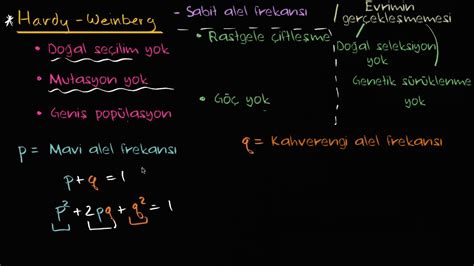 * Hardy-Weinberg
- Sabit alel frekansı
Evrimin
gerçekleşmemesi
• Doğal seçilim yok
• Rastgele çiftleşme
Doğal seleksiyon
yok
• Mutasyon yok
Genetik sürüklenme
yok
• Geniş popülasyon
• Göç yok
p = Mavi alel frekansı
q = Kahverengi alel frekansı
p+q = 1
p² + 2pq + q² = 1